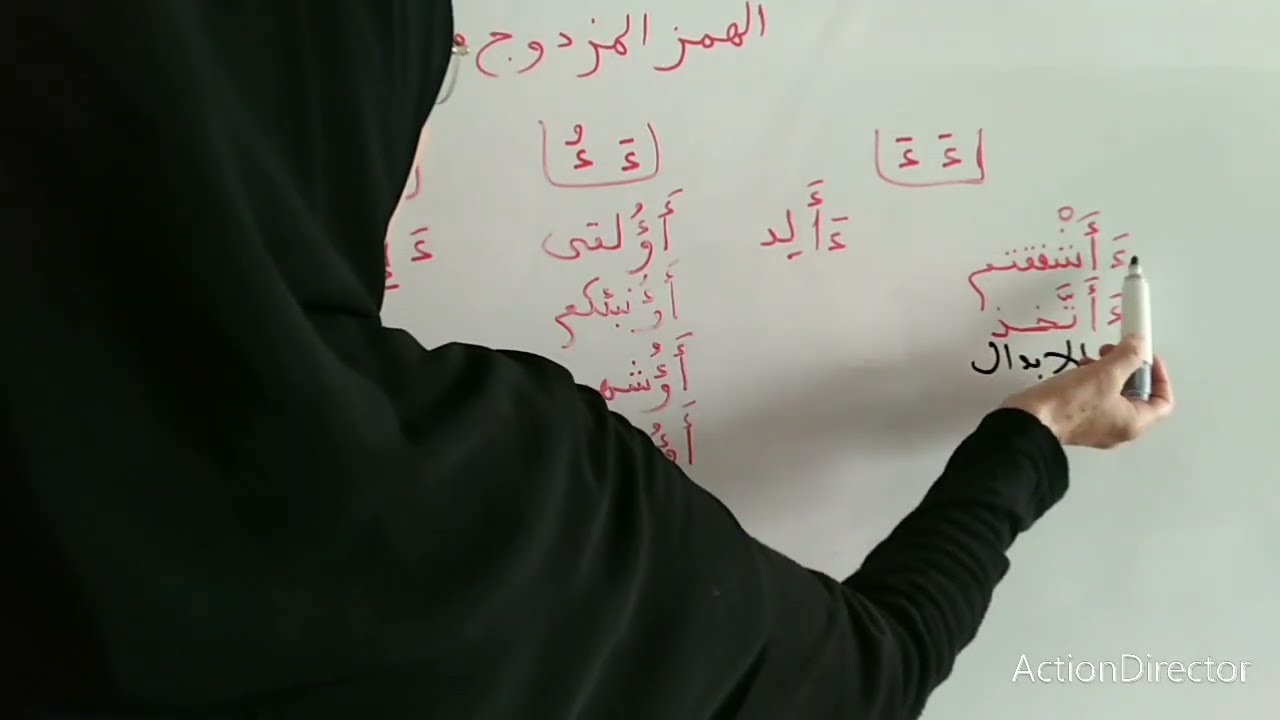 الهمز المزدوج
ءَ ءَ
ءَأَشْفقتم
ءَأَتَّخذ
الابدال
ءَأَلِد
ءَ ءُ
أَؤُلقى
أَؤُنبئكم
أَؤُشه
أَؤُ
ءَإِ
ActionDirector